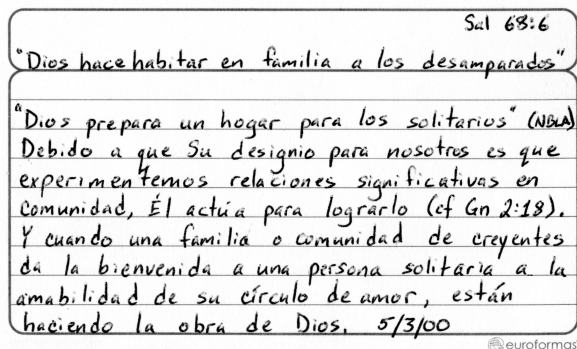 Sal 68:6
"Dios hace habitar en familia a los desamparados"
"Dios prepara un hogar para los solitarios" (NBLA)
Debido a que Su designio para nosotros es que
experimentemos relaciones significativas en
comunidad, Él actúa para lograrlo (cf Gn 2:18).
Y cuando una familia o comunidad de creyentes
da la bienvenida a una persona solitaria a la
amabilidad de su círculo de amor, están
haciendo la obra de Dios. 5/3/00
euroformas